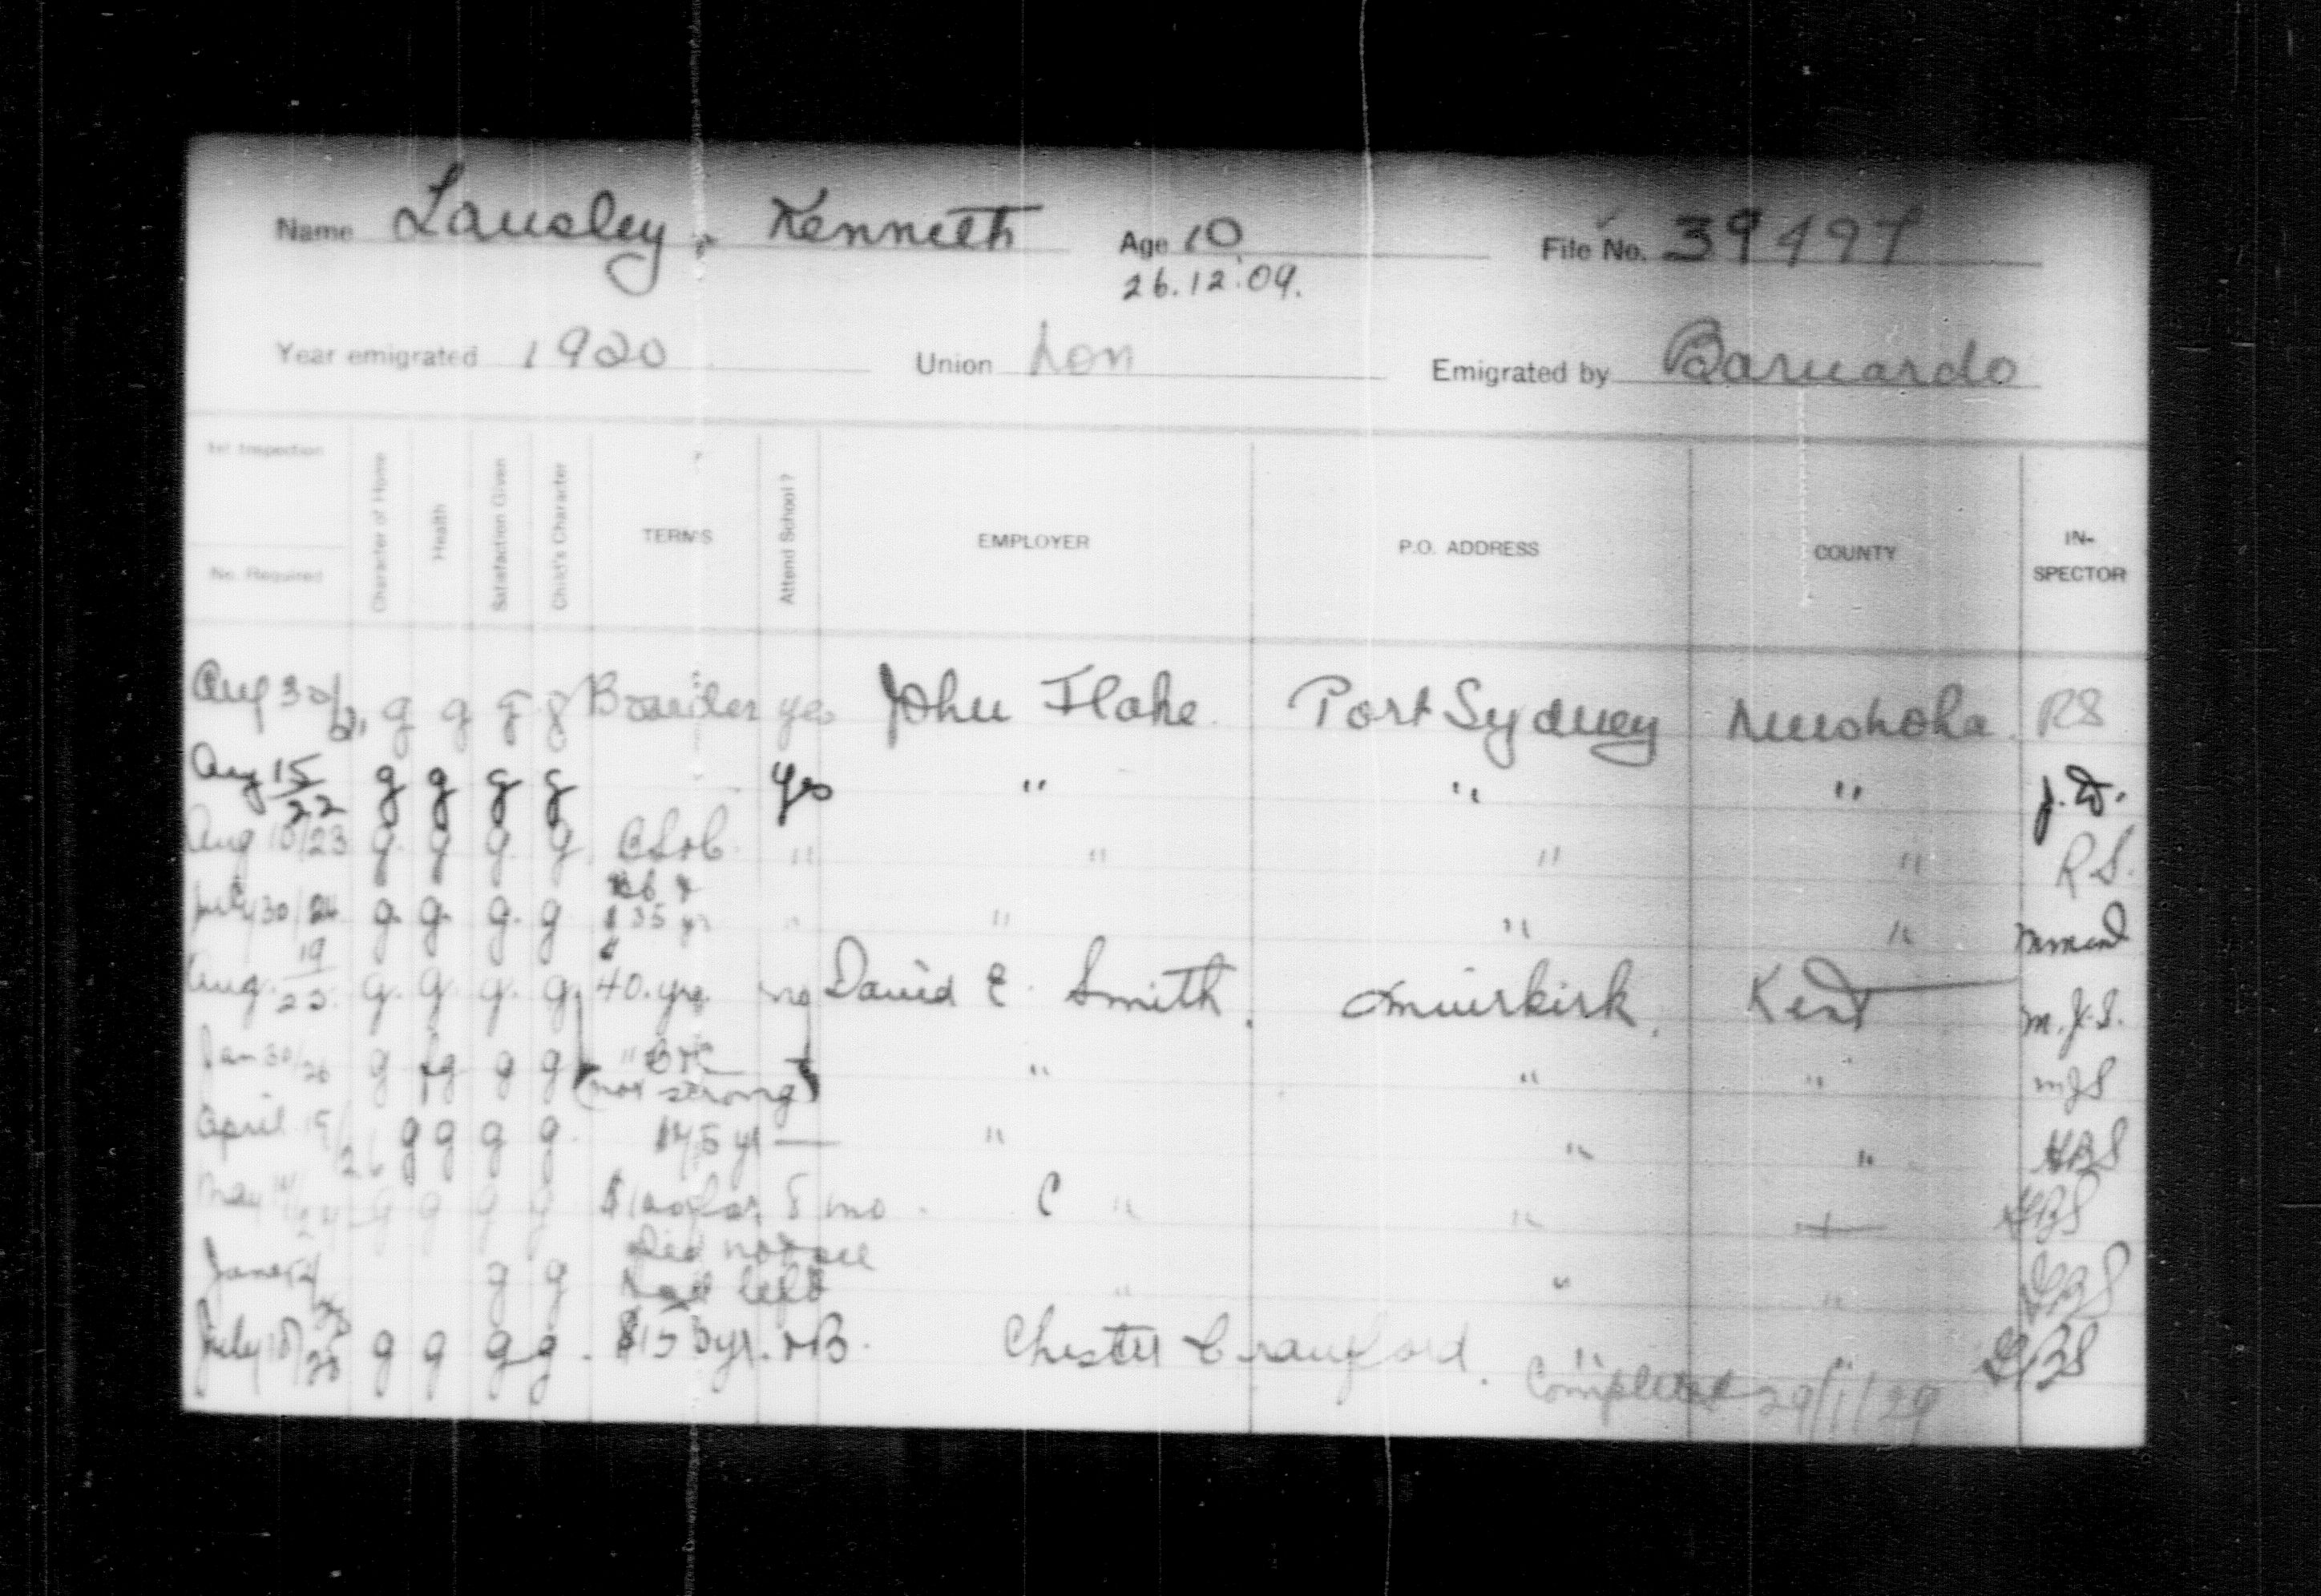 Name Lausley, Kenneth Age 10 File No. 39497
26.12.09.
Year emigrated 1920 Union Lon Emigrated by Barnardo
1st Inspection
No. Required
Character of Home
Health
Satisfaction Given
Child's Character
TERMS
Attend School?
EMPLOYER
P.O. ADDRESS
COUNTY
IN-
SPECTOR
Aug 30/21 g g g g Boarder yes John Flake Port Sydney Muskoka RS
Aug 15/22 g g g g yes " " " J.D.
Aug 10/23 g. g g. g " " " " R.S.
July 30/24 g. g. g. g $35 yr " " " "
Aug. 19/25. g. g. g. g. 40. yr. no David E. Smith. Muirkirk. Kent M.J.S.
Jan 30/26 g fg g g " " " " MJS
(not strong)
April 19/26 g g g g. $75 yr — " " " GBS
May g g g g $100 for 8 mo. C " " GBS
Did not see
June g g had left " " " GBS
July 18/28 g g g g. $155 yr. + B. Chester Crawford. " " GBS
Completed 29/1/29